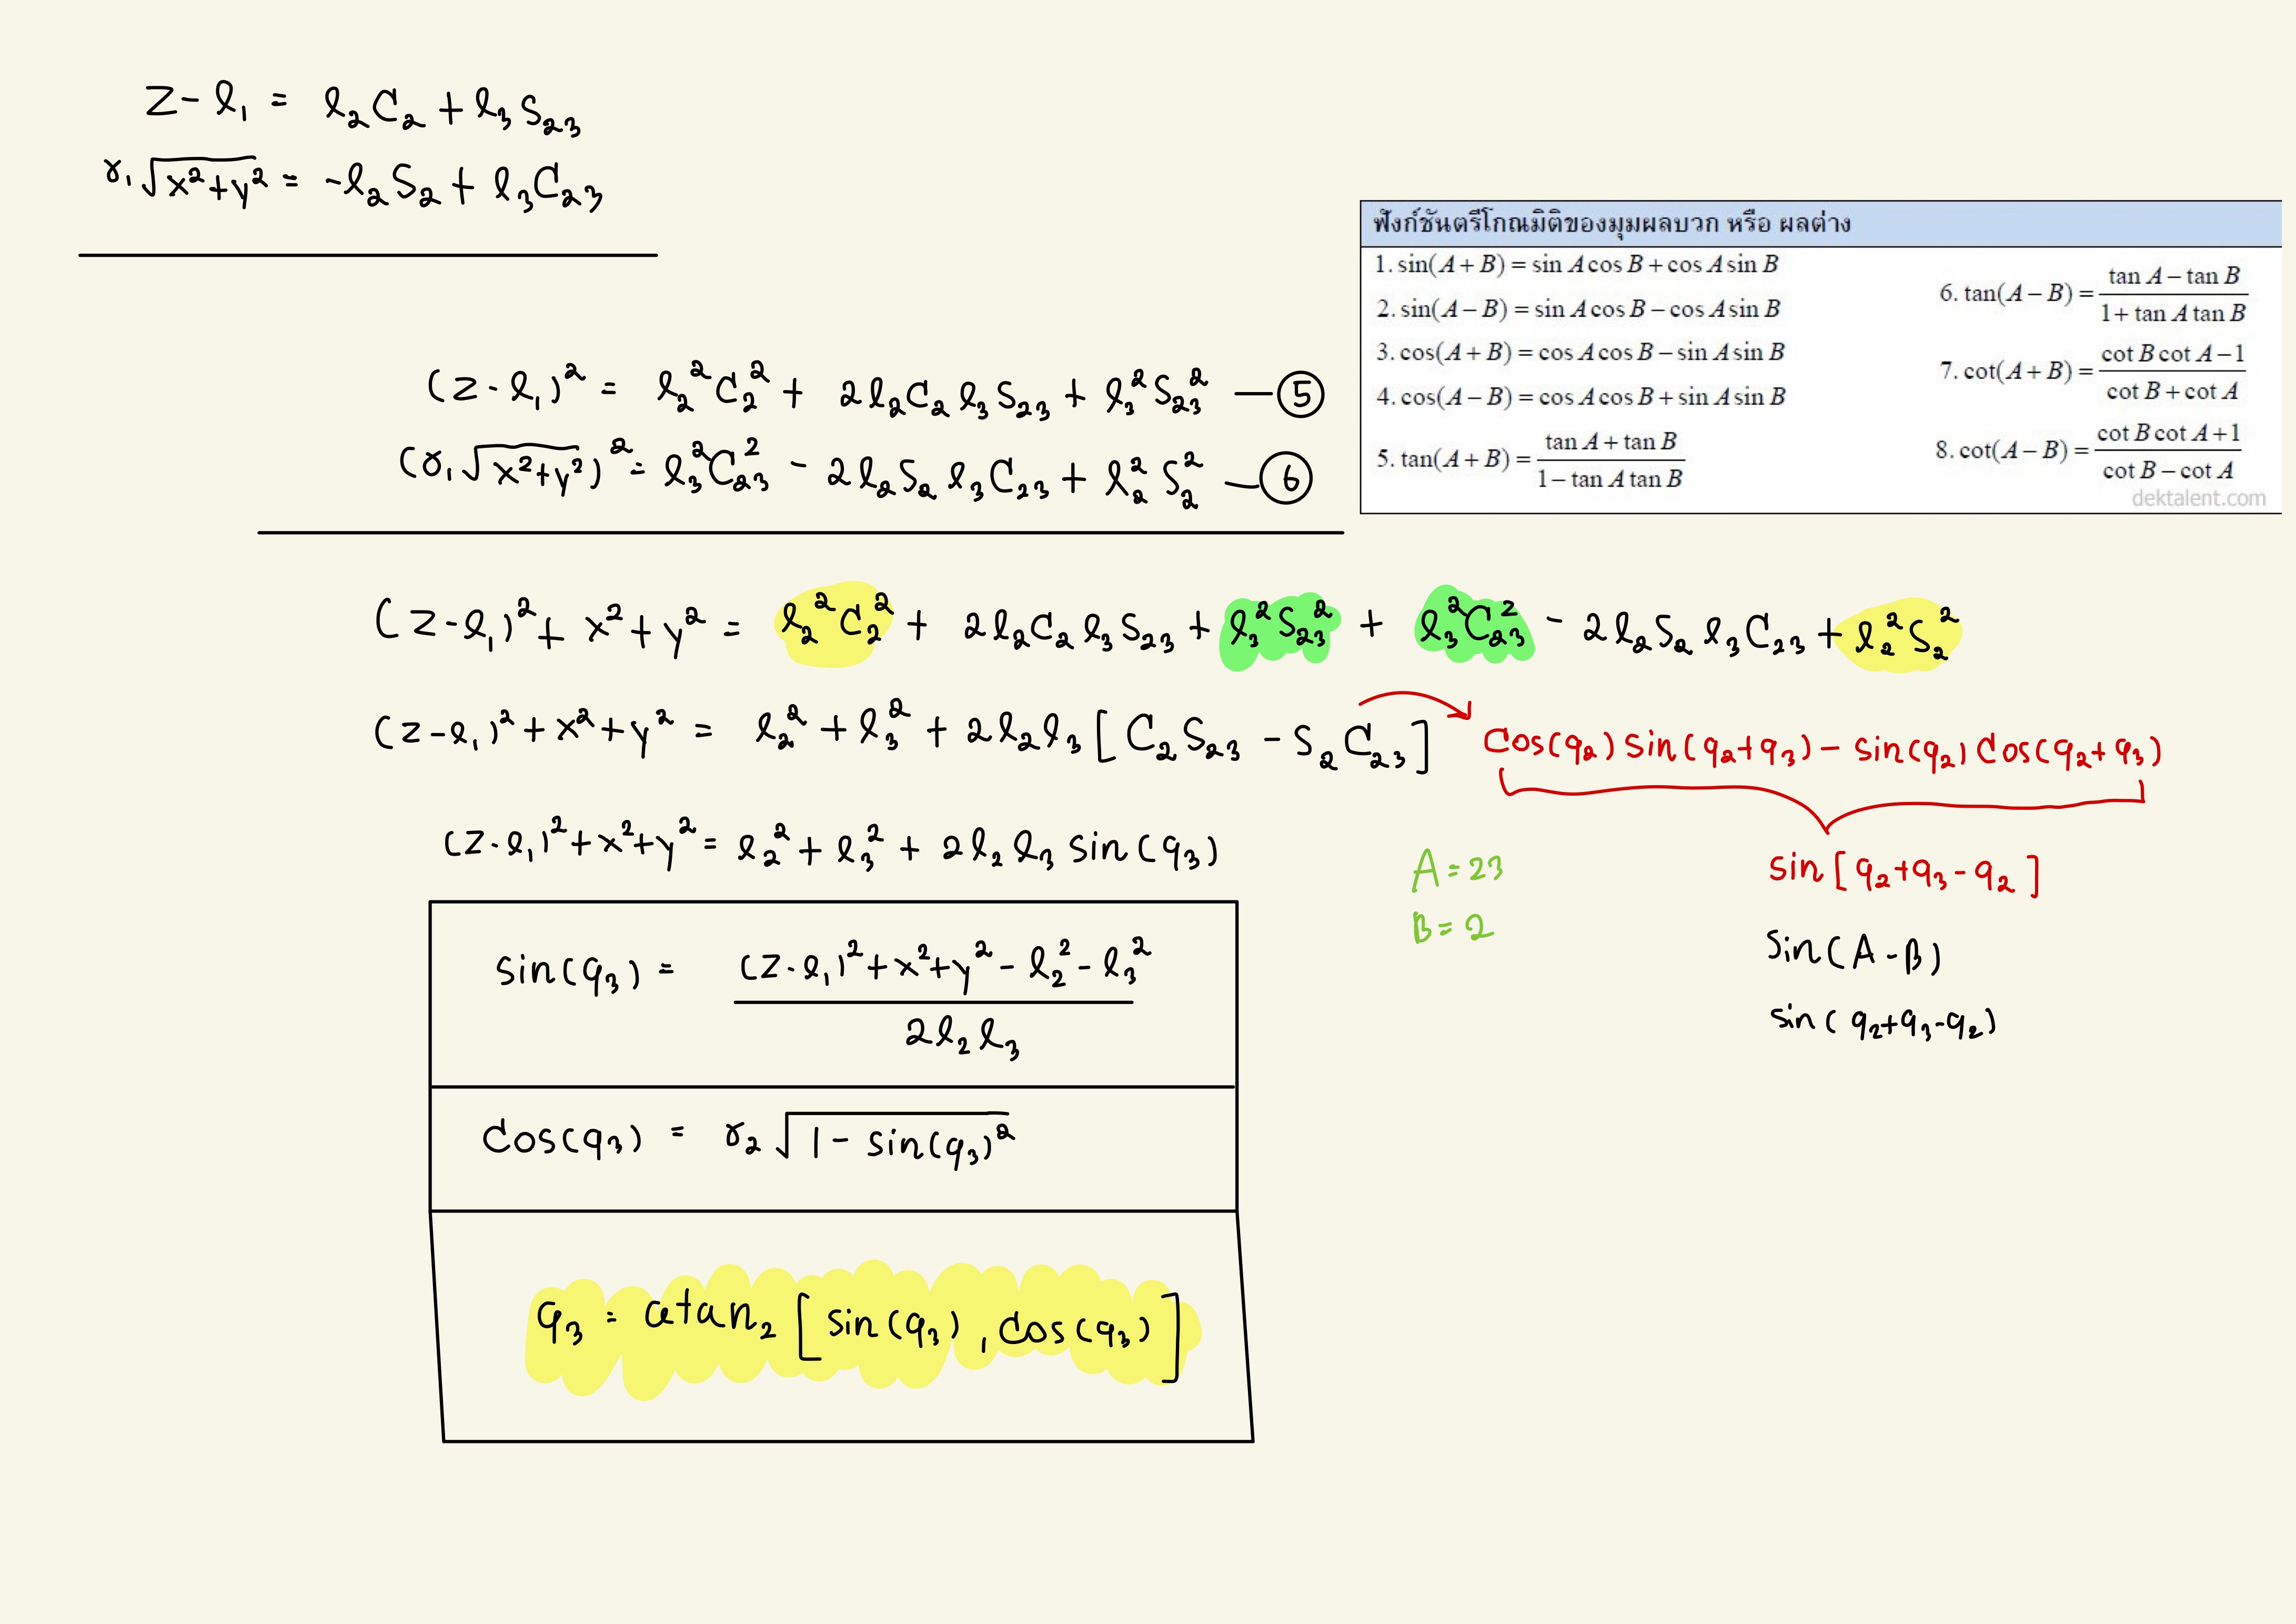 z - l₁ = l₂C₂ + l₃S₂₃
r₁√(x²+y²) = -l₂S₂ + l₃C₂₃
ฟังก์ชันตรีโกณมิติของมุมผลบวก หรือ ผลต่าง
1. sin(A + B) = sin A cos B + cos A sin B
2. sin(A − B) = sin A cos B − cos A sin B
3. cos(A + B) = cos A cos B − sin A sin B
4. cos(A − B) = cos A cos B + sin A sin B
5. tan(A + B) = (tan A + tan B)/(1 − tan A tan B)
6. tan(A − B) = (tan A − tan B)/(1 + tan A tan B)
7. cot(A + B) = (cot B cot A − 1)/(cot B + cot A)
8. cot(A − B) = (cot B cot A + 1)/(cot B − cot A)
dektalent.com
(z - l₁)² = l₂²C₂² + 2l₂C₂l₃S₂₃ + l₃²S₂₃² — ⑤
(r₁√(x²+y²))² = l₃²C₂₃² - 2l₂S₂l₃C₂₃ + l₂²S₂² — ⑥
(z - l₁)² + x² + y² = l₂²C₂² + 2l₂C₂l₃S₂₃ + l₃²S₂₃² + l₃²C₂₃² - 2l₂S₂l₃C₂₃ + l₂²S₂²
(z - l₁)² + x² + y² = l₂² + l₃² + 2l₂l₃[C₂S₂₃ - S₂C₂₃]
cos(q₂) sin(q₂+q₃) - sin(q₂) cos(q₂+q₃)
(z - l₁)² + x² + y² = l₂² + l₃² + 2l₂l₃ sin(q₃)
A = 23
B = 2
sin[q₂+q₃-q₂]
sin(A - B)
sin(q₂+q₃-q₂)
sin(q₃) = ((z - l₁)² + x² + y² - l₂² - l₃²)/(2l₂l₃)
cos(q₃) = r₂√(1 - sin(q₃)²)
q₃ = atan₂[sin(q₃), cos(q₃)]